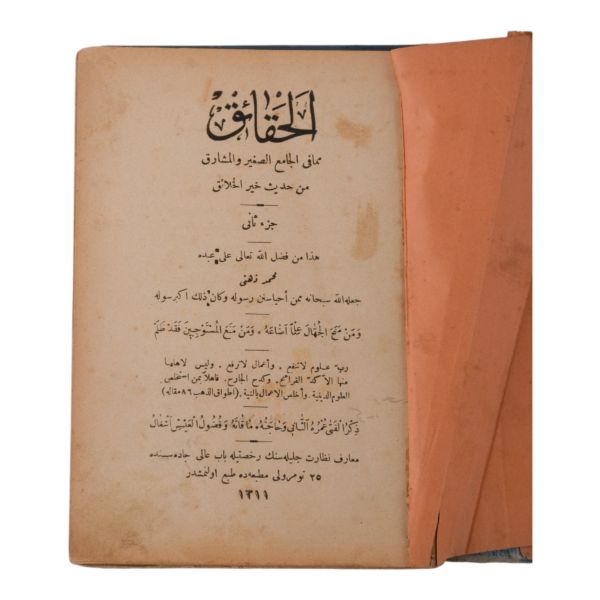 الحقائق
ممافى الجامع الصغير والمشارق
من حديث خير الخلائق
جزء ثانى
هذا من فضل الله تعالى على عبده
محمد ذهنى
جعله الله سبحانه ممن أحياسنن رسوله وكان ذلك اكبرسوله
وَمَنْ مَنَحَ الْجُهَّالَ عِلْمًا اَضَاعَهُ ٭ وَمَنْ مَنَعَ الْمُسْتَوْجِبِينَ فَقَدْ ظَلَمَ
رب علوم لاتنفع ٭ وأعمال لاترفع ٭ وليس لاهلها
منها الا كد القرائح ٭ وكدح الجارح ٭ فاهلا بمن استخلص
العلوم الدينية ٭ وأخلص الاعمال بالنية ٭ (اطواق الذهب ٨٦ مقاله)
ذِكْرُ الْفَتَى عُمْرُهُ الثَّانِى وَحَاجَتُهُ مَا قَاتَهُ وَفُضُولُ الْعَيْشِ اَشْغَالُ
معارف نظارت جليله سنك رخصتيله باب عالى جاده سنده
٢٥ نومرولى مطبعه ده طبع اولنمشدر
١٣١١